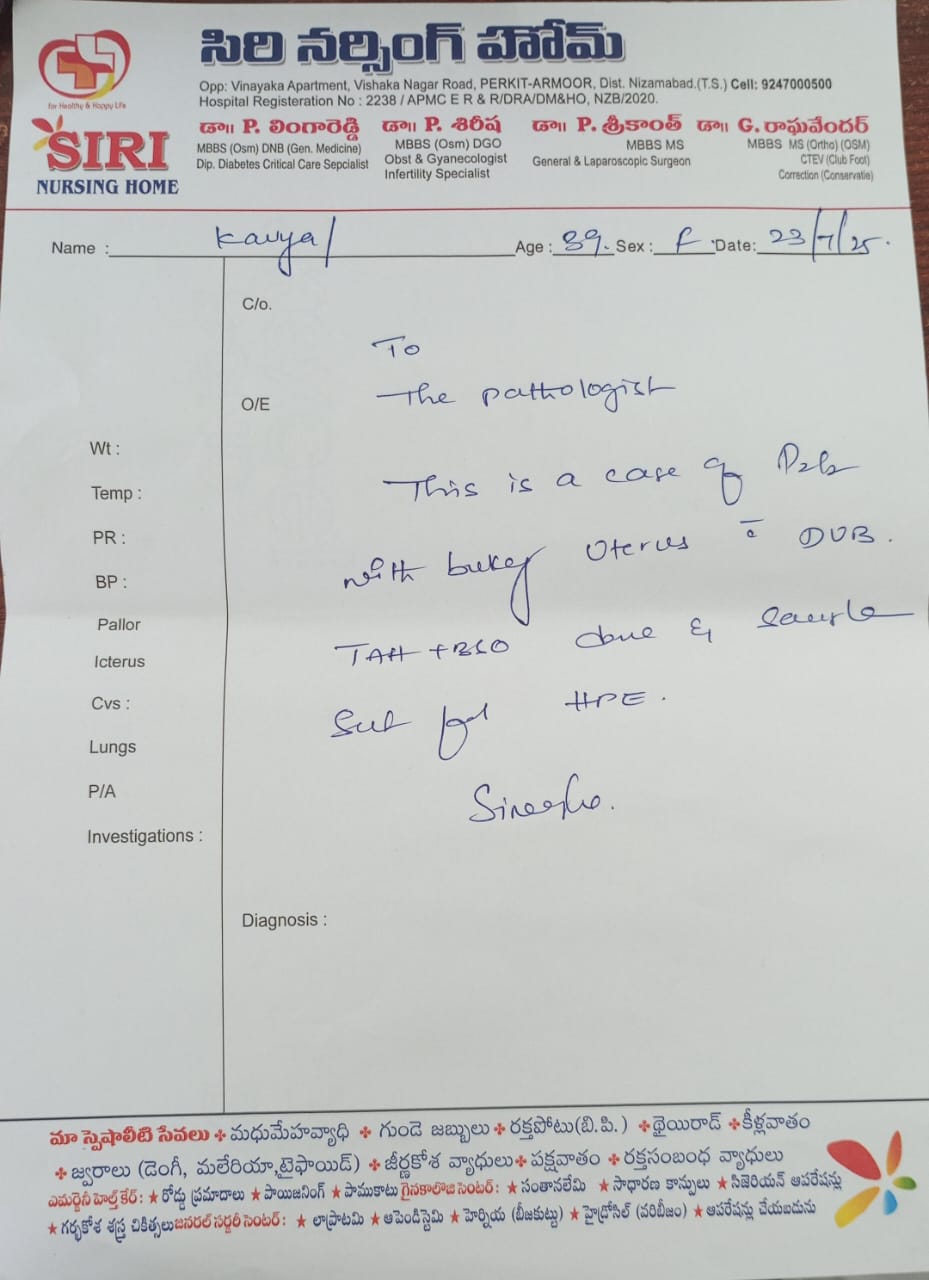 సిరి నర్సింగ్ హోమ్
Opp: Vinayaka Apartment, Vishaka Nagar Road, PERKIT-ARMOOR, Dist. Nizamabad.(T.S.) Cell: 9247000500
Hospital Registeration No : 2238 / APMC E R & R/DRA/DM&HO, NZB/2020.
for Healthy & Happy Life
SIRI
NURSING HOME
డా॥ P. లింగారెడ్డి
MBBS (Osm) DNB (Gen. Medicine)
Dip. Diabetes Critical Care Sepcialist
డా॥ P. శిరీష
MBBS (Osm) DGO
Obst & Gyanecologist
Infertility Specialist
డా॥ P. శ్రీకాంత్
MBBS MS
General & Laparoscopic Surgeon
డా॥ G. రాఘవేందర్
MBBS MS (Ortho) (OSM)
CTEV (Club Foot)
Correction (Conservatie)
Name : Kavya Age : 39. Sex : F Date: 23/7/25.
C/o.
To
O/E The pathologist
Wt :
Temp :
PR :
BP :
Pallor
Icterus
Cvs :
Lungs
P/A
Investigations :
This is a case of P2L2
with bukey Uterus c̄ DUB.
TAH + BSO done & sample
Sent for HPE.
Sireesha.
Diagnosis :
మా స్పెషాలిటి సేవలు + మధుమేహవ్యాధి + గుండె జబ్బులు + రక్తపోటు(బి.పి.) + థైయిరాడ్ + కీళ్లవాతం
+ జ్వరాలు (డెంగీ, మలేరియా,టైఫాయిడ్) + జీర్ణకోశ వ్యాధులు + పక్షవాతం + రక్తసంబంధ వ్యాధులు
ఎమర్జెనీ హెల్త్‌కేర్: ★ రోడ్డు ప్రమాదాలు ★ పాయిజనింగ్ ★ పాముకాటు గైనకాలాజి సెంటర్: ★ సంతానలేమి ★ సాధారణ కాన్పులు ★ సిజెరియన్ ఆపరేషన్లు
★ గర్భకోశ శస్త్ర చికిత్సలు జనరల్ సర్జరీ సెంటర్: ★ లాప్రాటమి ★ ఆపెండిస్టెమి ★ హెర్నియ (బీజకుట్టు) ★ హైడ్రోసిల్ (వరిబీజం) ★ ఆపరేషన్లు చేయబడును